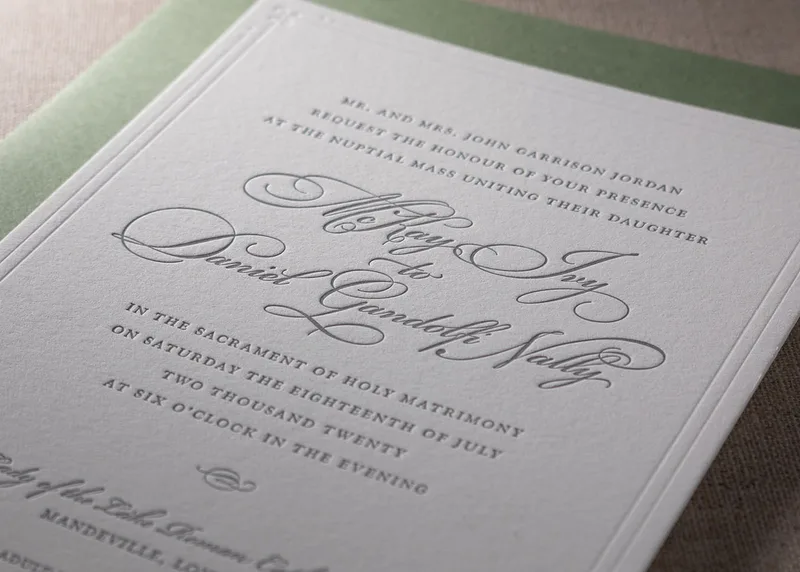 MR. AND MRS. JOHN GARRISON JORDAN
REQUEST THE HONOUR OF YOUR PRESENCE
AT THE NUPTIAL MASS UNITING THEIR DAUGHTER
McKay Ivy
to
Daniel Gandolfi Nally
IN THE SACRAMENT OF HOLY MATRIMONY
ON SATURDAY THE EIGHTEENTH OF JULY
TWO THOUSAND TWENTY
AT SIX O'CLOCK IN THE EVENING
Lady of the Lake Roman
MANDEVILLE,